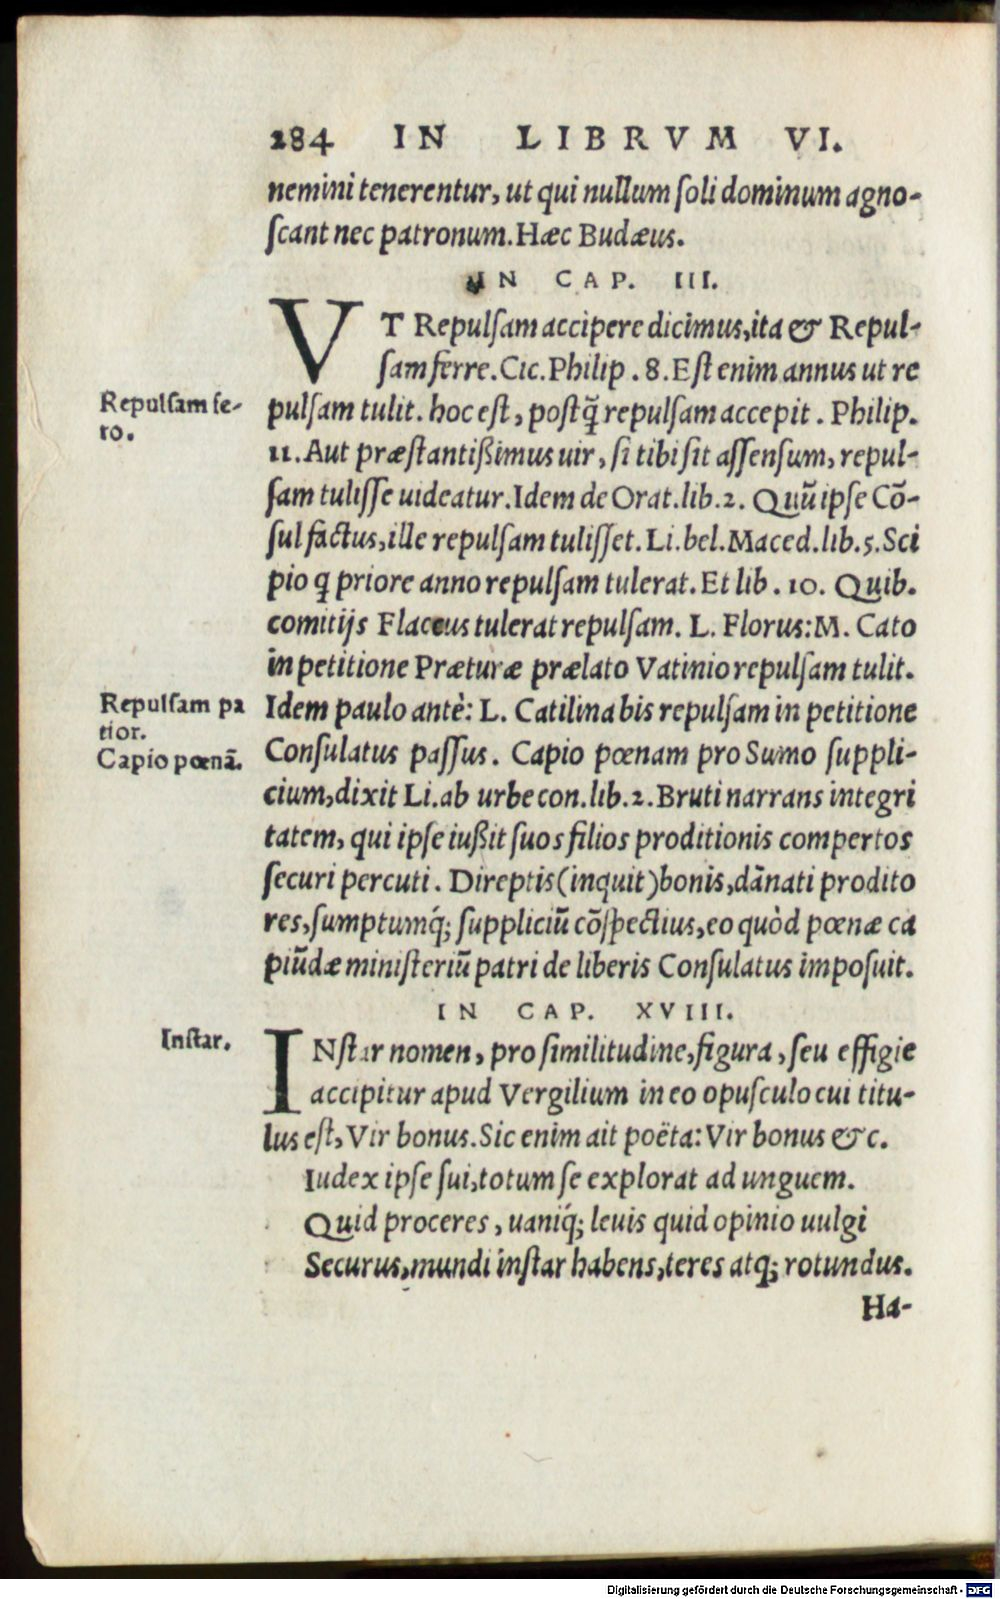 284 IN LIBRVM VI.
nemini tenerentur, ut qui nullum ſoli dominum agno-
ſcant nec patronum. Hæc Budæus.
IN CAP. III.
VT Repulſam accipere dicimus, ita & Repul-
ſam ferre. Cic. Philip. 8. Eſt enim annus ut re
Repulſam fe-
ro.
pulſam tulit. hoc eſt, poſtq̃ repulſam accepit. Philip.
11. Aut præſtantißimus uir, ſi tibi ſit aſſenſum, repul-
ſam tuliſſe uideatur. Idem de Orat. lib. 2. Quũ ipſe Cõ-
ſul factus, ille repulſam tuliſſet. Li. bel. Maced. lib. 5. Sci
pio q̃ priore anno repulſam tulerat. Et lib. 10. Quib.
comitijs Flaccus tulerat repulſam. L. Florus: M. Cato
in petitione Præturæ prælato Vatinio repulſam tulit.
Repulſam pa
tior.
Idem paulo antè: L. Catilina bis repulſam in petitione
Capio pœnã.
Conſulatus paſſus. Capio pœnam pro Sumo ſuppli-
cium, dixit Li. ab urbe con. lib. 2. Bruti narrans integri
tatem, qui ipſe iußit ſuos filios proditionis compertos
ſecuri percuti. Direptis (inquit) bonis, dãnati prodito
res, ſumptumq́; ſuppliciũ cõſpectius, eo quòd pœnæ ca
piũdæ miniſteriũ patri de liberis Conſulatus impoſuit.
IN CAP. XVIII.
Inſtar.
INſtar nomen, pro ſimilitudine, figura, ſeu effigie
accipitur apud Vergilium in eo opuſculo cui titu-
lus eſt, Vir bonus. Sic enim ait poëta: Vir bonus &c.
Iudex ipſe ſui, totum ſe explorat ad unguem.
Quid proceres, uaniq́; leuis quid opinio uulgi
Securus, mundi inſtar habens, teres atq; rotundus.
Ha-
Digitalisierung gefördert durch die Deutsche Forschungsgemeinschaft - DFG